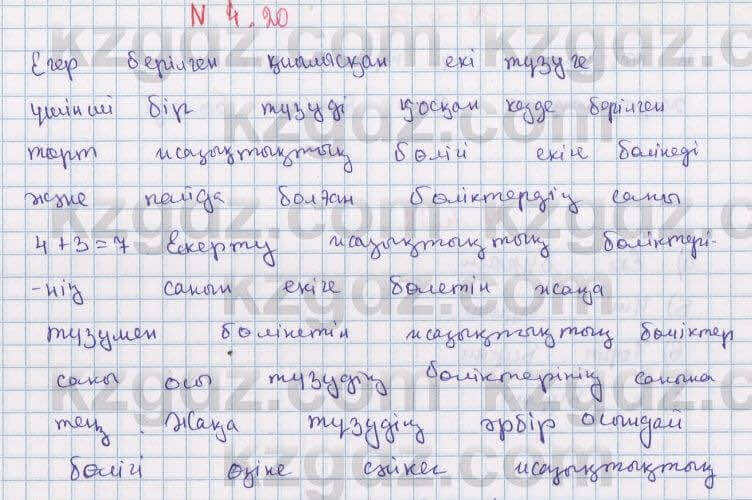 N 4.20
Егер берілген қиылысқан екі түзуге
үшінші бір түзуді қосқан кезде берілген
төрт жазықтықтың бөлігі екіге бөлінеді
және пайда болған бөліктердің саны
4+3=7 Ескерту жазықтықтың бөліктері-
-нің санын екіге бөлетін жаңа
түзумен бөлінетін жазықтықтың бөліктер
саны осы түзудің бөліктерінің санына
тең. Жаңа түзудің әрбір осындай
бөлігі өзіне сәйкес жазықтықтың